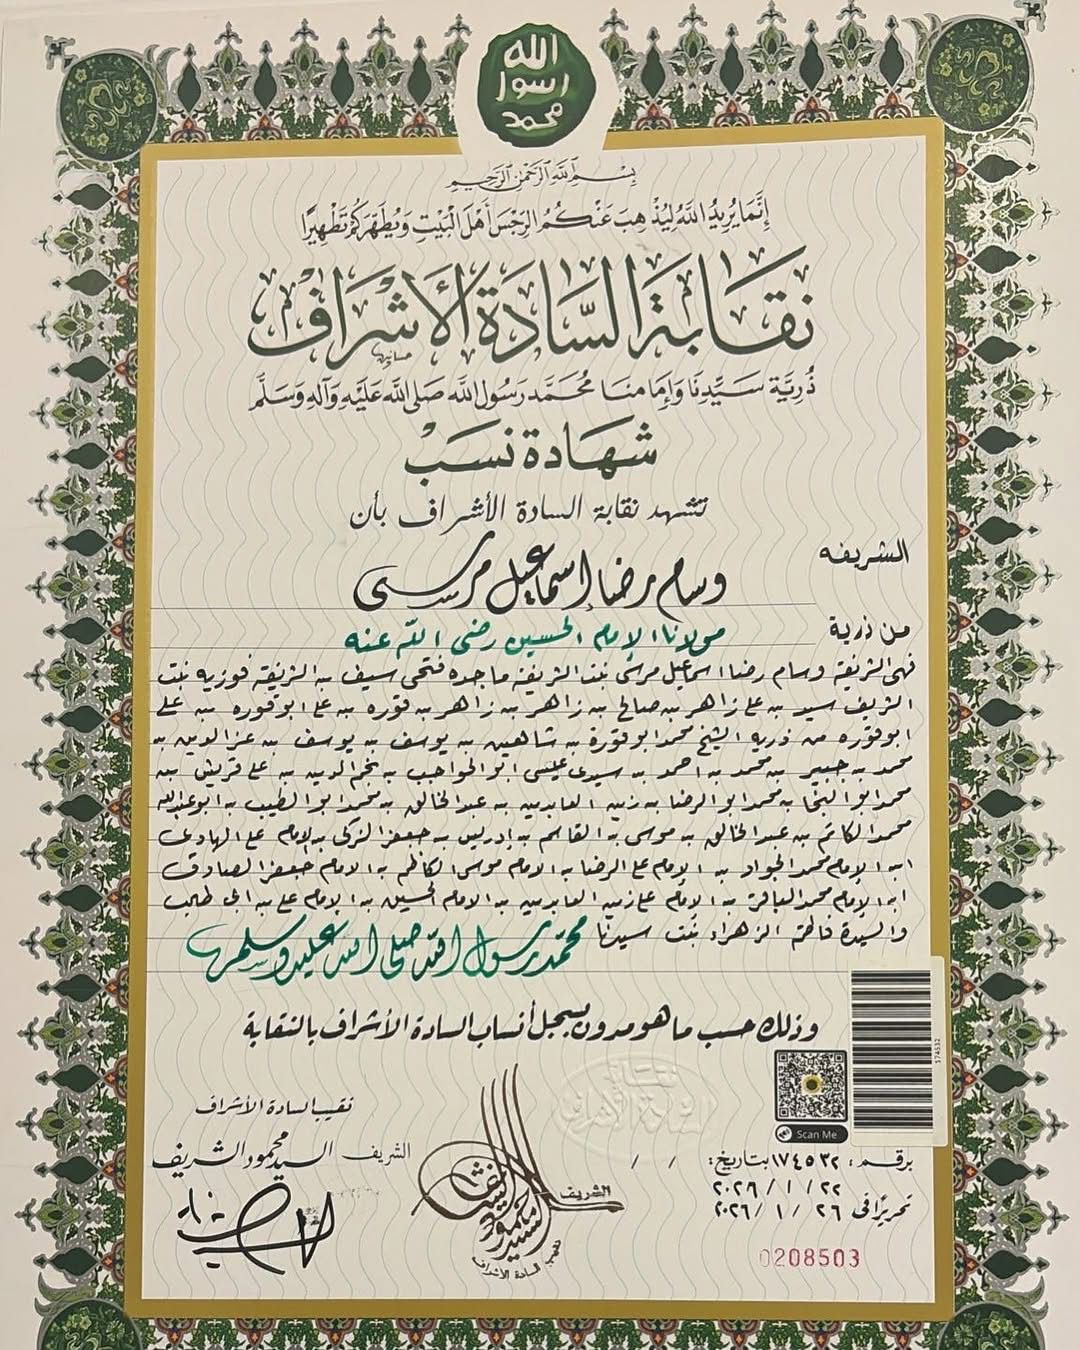 الله
رسول
محمد
بسم الله الرحمن الرحيم
إِنَّمَا يُرِيدُ اللَّهُ لِيُذْهِبَ عَنكُمُ الرِّجْسَ أَهْلَ الْبَيْتِ وَيُطَهِّرَكُمْ تَطْهِيرًا
نقابة السادة الأشراف
ذُرِّيَّة سَيِّدِنَا وَإِمَامِنَا مُحَمَّد رَسُول اللَّه صَلَّى اللَّه عَلَيْهِ وَآلِهِ وَسَلَّم
شهادة نسب
تشهد نقابة السادة الأشراف بأن
الشريفه
وسام رضا إسماعيل مرسى
من ذرية مولانا الإمام الحسين رضى الله عنه
فهى الشريفة وسام رضا اسماعيل مرسى بنت الشريفة ماجده فتحى سيف بنت الشريفة فوزيه بنت
الشريف سيد بن على زاهر بن صالح بن زاهر بن زاهر بن قوره بن على ابوقوره بن على
ابوقوره من ذرية الشيخ محمد ابوقورة بن شاهين بن يوسف بن يوسف بن عزالدين بن
محمد بن جبير بن محمد بن احمد بن سيدى عيسى ابوالحواجب بن نجم الدين بن على قريش بن
محمد ابو النجا بن محمد ابو الرضا بن زين العابدين بن عبدالخالق بن محمد ابو الطيب بن ابوعبدالله
محمد الكاتم بن عبدالخالق بن موسى بن القاسم بن إدريس بن جعفر الزكى بن الإمام على الهادى
ابن الإمام محمد الجواد بن الإمام على الرضا بن الامام موسى الكاظم بن الامام جعفر الصادق
ابن الإمام محمد الباقر بن الإمام على زين العابدين بن الامام الحسين بن الإمام على بن ابى طالب
والسيدة فاطمة الزهراء بنت سيدنا محمد رسول الله صلى الله عليه وسلم
وذلك حسب ما هو مدون بسجل أنساب السادة الأشراف بالنقابة
174532
Scan Me
نقابة
السادة الأشراف
نقيب السادة الأشراف
الشريف السيد محمود الشريف
الشريف
نقيب السادة الأشراف
برقم: ١٧٤٥٣٢ بتاريخ: / /
٢٠٢٦ / ١ / ٢٢
تحريرًا فى ٢٦ / ١ / ٢٠٢٦
0208503